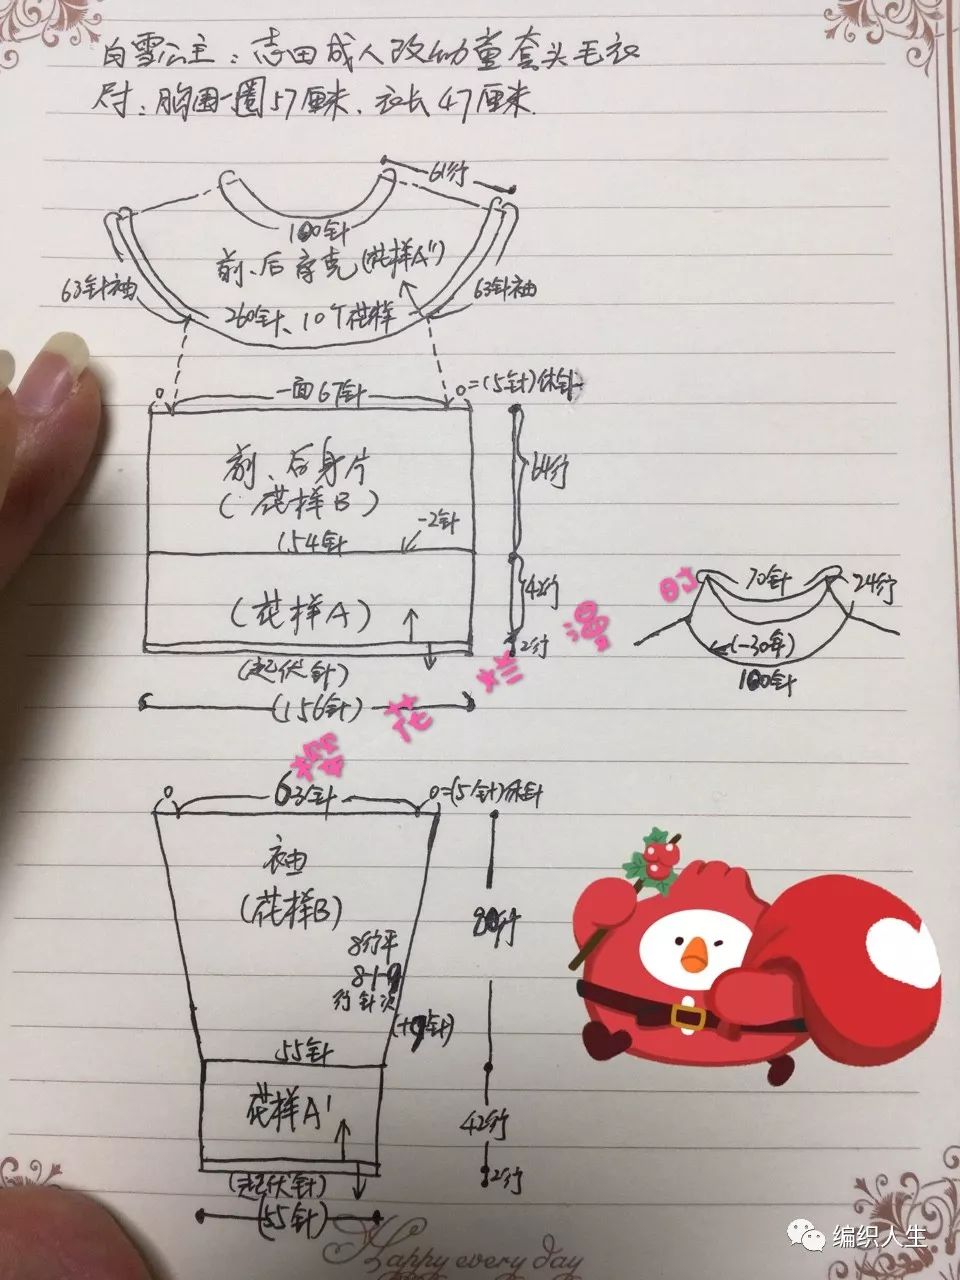 白雪公主:志田成人改幼童套头毛衣
尺寸:胸围一圈57厘米、衣长47厘米.
61行
100针
前、后育克(花样A")
63针袖
63针袖
260针、10个花样
一面67针
0=(5针)休针
前、后身片
(花样B)
64行
154针
-2针
(花样A)
42行
2行
(起伏针)
(156针)
70针
24行
(-30针)
100针
樱花烂漫时
0
63针
0=(5针)休针
袖
(花样B)
80行
8行平
8-1-9
行针次
(+9针)
55针
花样A'
42行
2行
(起伏针)
(55针)
Happy every day
编织人生